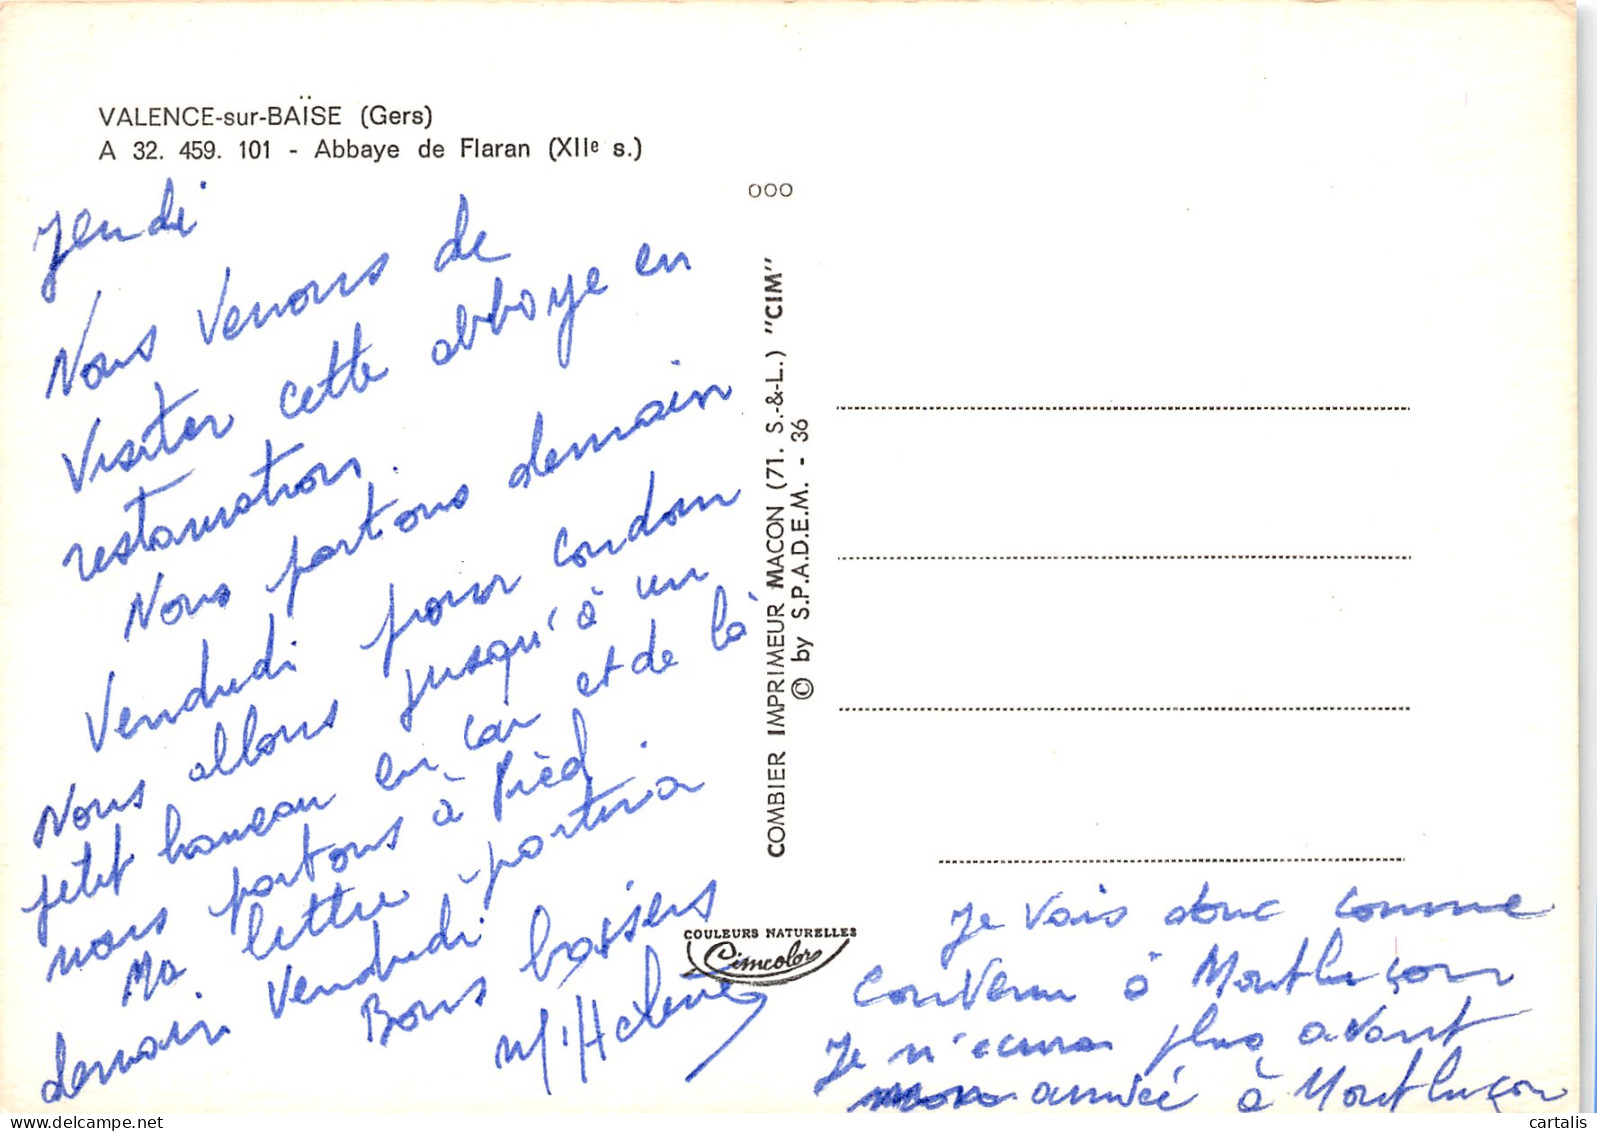 VALENCE-sur-BAÏSE (Gers)
A 32. 459. 101 - Abbaye de Flaran (XIIe s.)
Jeudi
Nous venons de
visiter cette abbaye en
restauration.
Nous partons demain
Vendredi pour condom
Nous allons jusqu'à un
petit hameau en car et de là
nous partons à pied
Ma lettre partira
demain Vendredi
Bons baisers
M Hélène
OOO
COMBIER IMPRIMEUR MACON (71. S.-&-L.) "CIM"
© by S.P.A.D.E.M. - 36
COULEURS NATURELLES
Cimcolor
Je vais donc comme
convenu à Montluçon
Je n'écrirai plus avant
mon arrivée à Montluçon
cartalis
delcampe.net